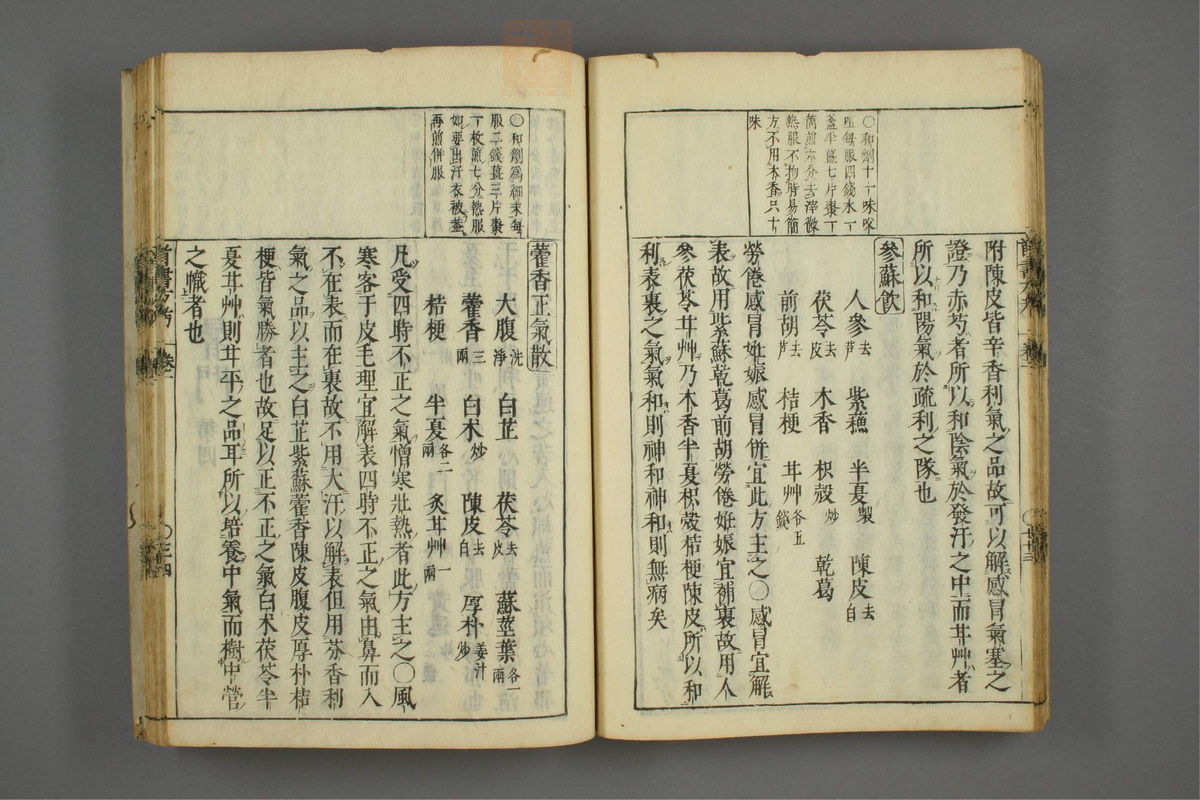 〇和劑十一味㕮
咀每服四錢水一
盞半薑七片棗一
箇煎六分去滓微
熱服不拘時易簡
方不用木香只十
味
附陳皮皆辛香利氣之品故可以解感冒氣塞之
證乃赤芍者所以和陰氣於發汗之中而甘艸者
所以和陽氣於疏利之隊也
參蘇飲
人參去芦 紫蘓 半夏製 陳皮去白
茯苓去皮 木香 枳殼炒 乾葛
前胡去芦 桔梗 甘艸各五錢
勞倦感冒妊娠感冒併宜此方主之〇感冒宜解
表故用紫蘇乾葛前胡勞倦妊娠宜補裏故用人
參茯苓甘艸乃木香半夏枳殼桔梗陳皮所以和
利表裏之氣氣和則神和神和則無病矣
〇和劑爲細末每
服二錢薑三片棗
一枚煎七分熱服
如要出汗衣被蓋
再煎併服
藿香正氣散
大腹洗淨 白芷 茯苓去皮 蘇莖葉各一兩
藿香三兩 白术炒 陳皮去白 厚朴姜汁炒
桔梗 半夏各二兩 炙甘艸一兩
凡受四時不正之氣憎寒壯熱者此方主之〇風
寒客于皮毛理宜解表四時不正之氣由鼻而入
不在表而在裏故不用大汗以解表但用芬香利
氣之品以主之白芷紫蘇藿香陳皮腹皮厚朴桔
梗皆氣勝者也故足以正不正之氣白术茯苓半
夏甘艸則甘平之品耳所以培養中氣而樹中營
之幟者也
卷一